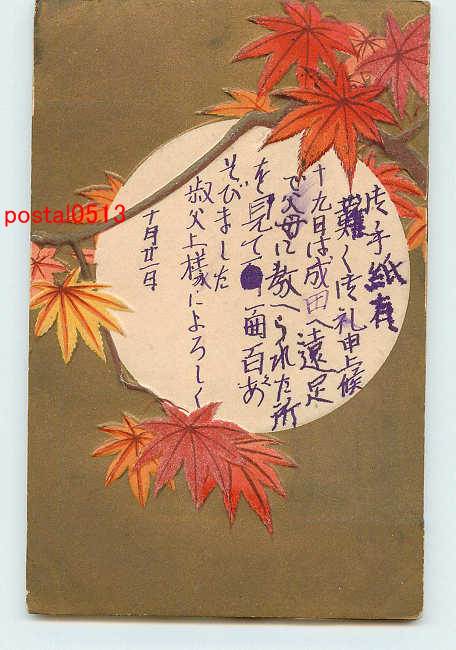 御手紙有
難く御礼申上候
十九日は成田へ遠足
で父母に教へられた所
を見て面白くあ
そびました
叔父上様によろしく
十月廿一日
postal0513